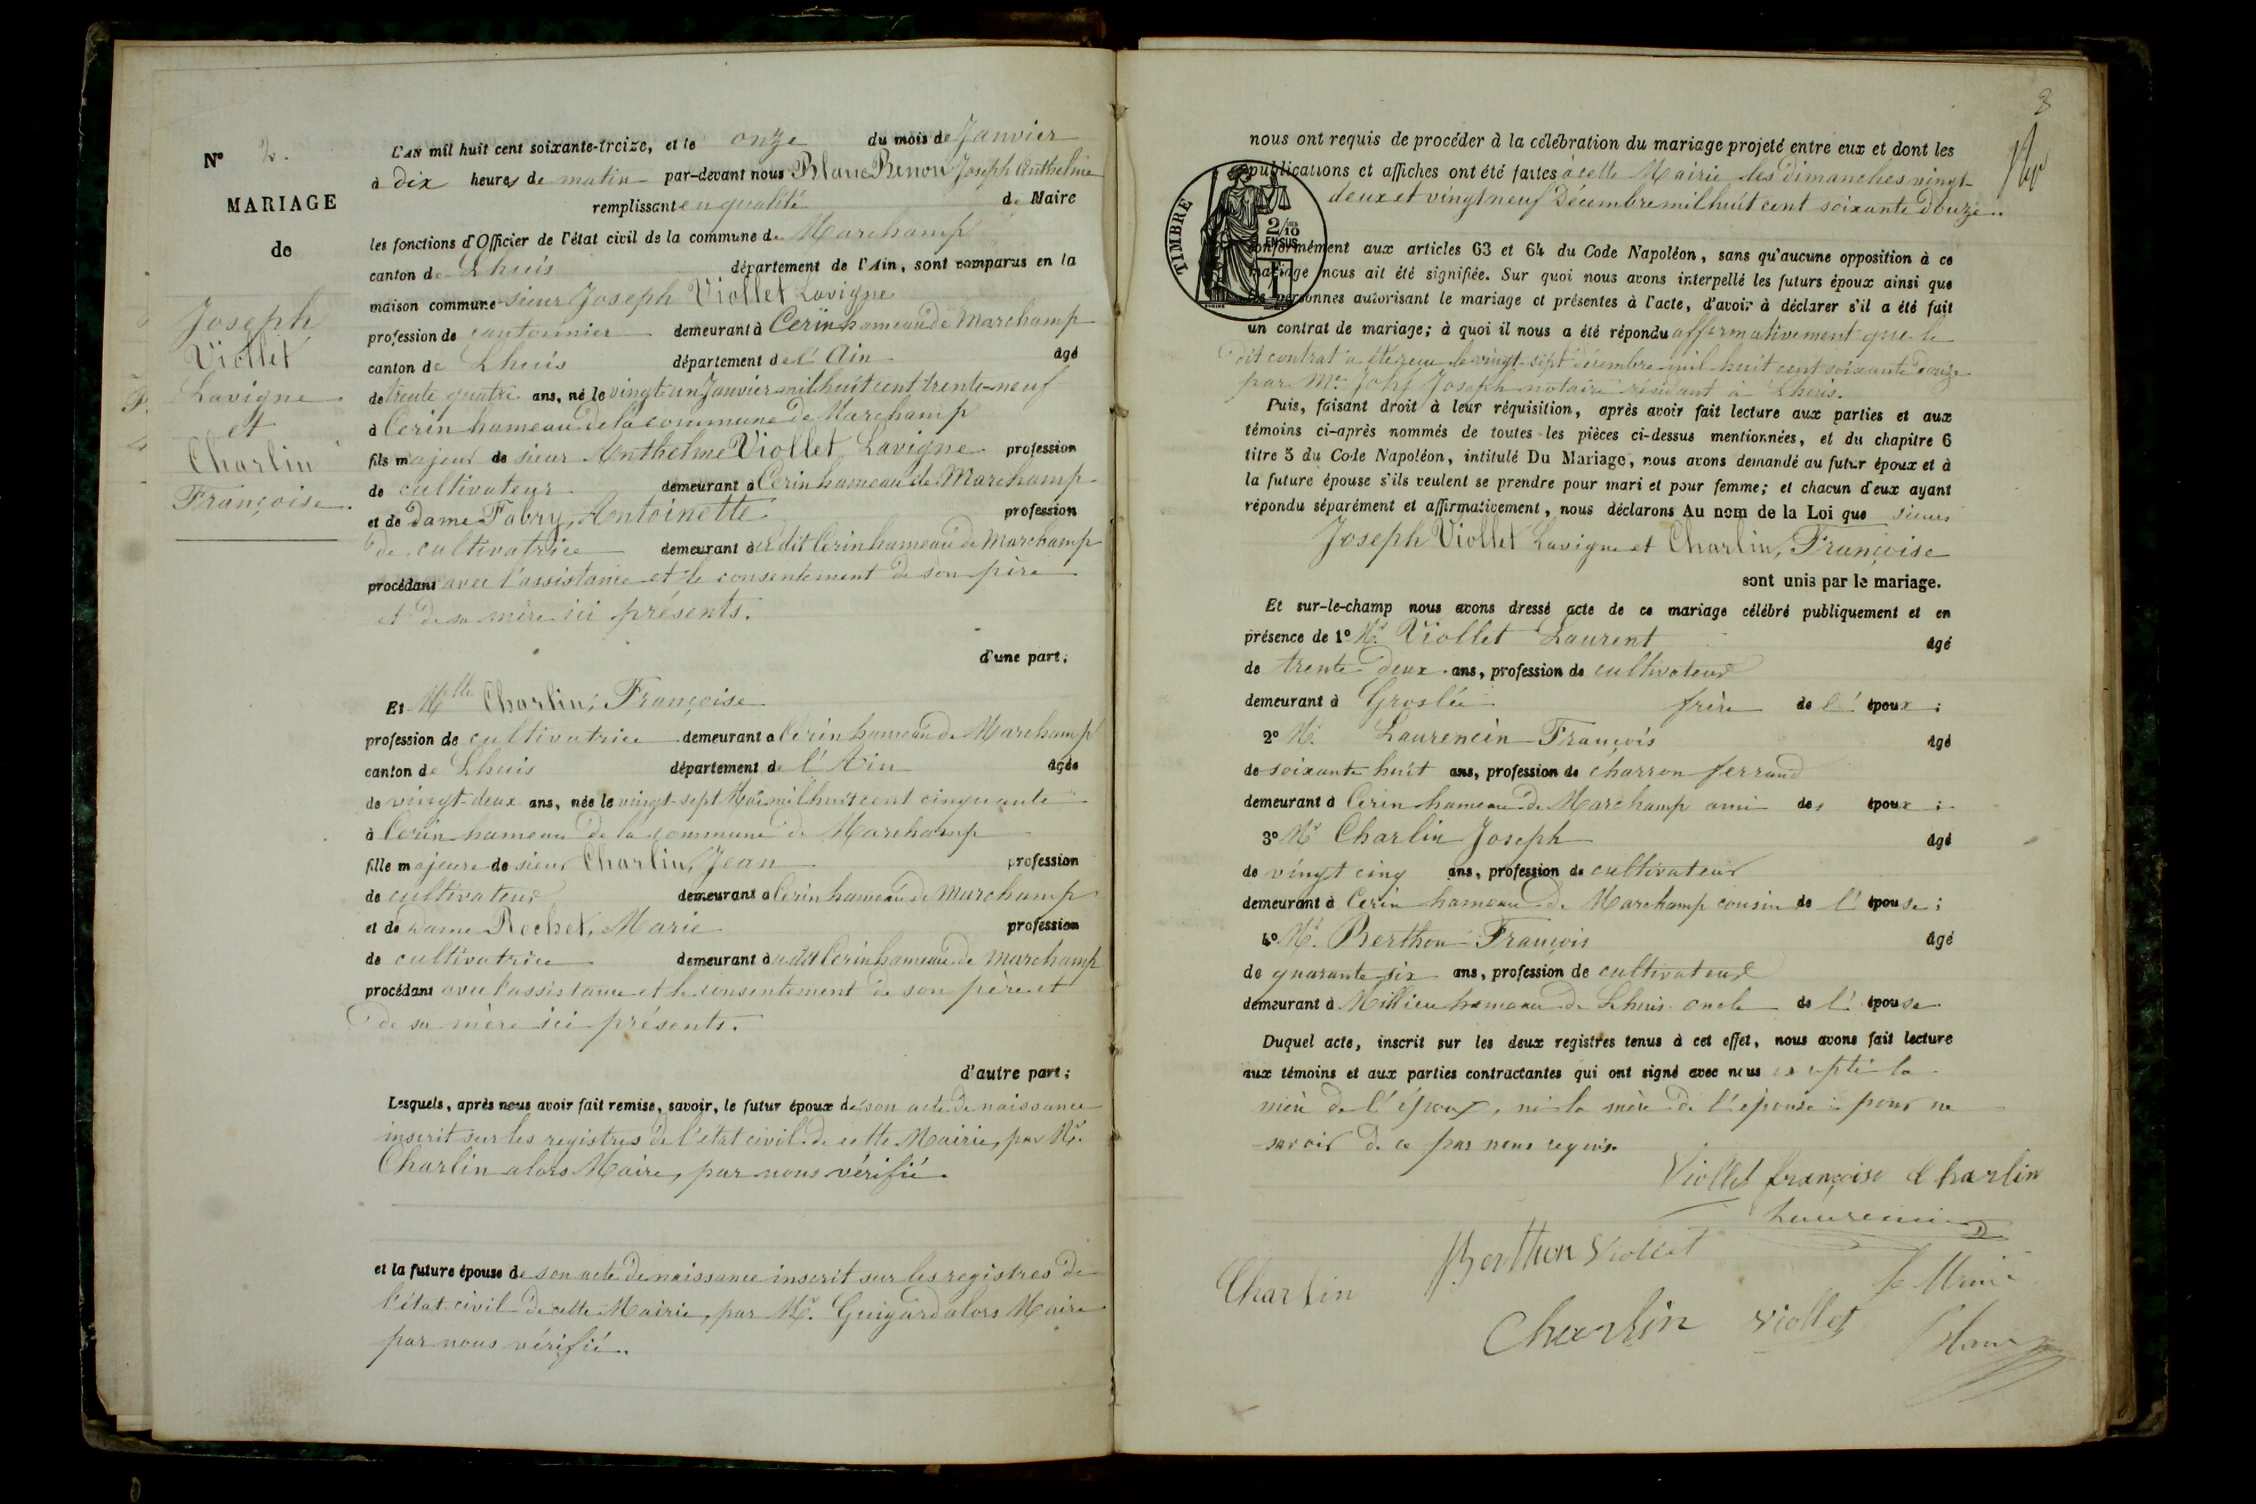 N° 2.
MARIAGE
de
Joseph
Viollet
Lavigne
et
Charlin
Françoise.
L'AN mil huit cent soixante-treize, et le onze du mois de Janvier
à dix heures de matin par-devant nous Blanc Benon Joseph Anthelme
remplissant en qualité de Maire
les fonctions d'Officier de l'état civil de la commune de Marchamp
canton de Lhuis département de l'Ain, sont comparus en la
maison commune sieur Joseph Viollet Lavigne
profession de cantonnier demeurant à Cerin hameau de Marchamp
canton de Lhuis département de l'Ain âgé
de trente quatre ans, né le vingt-un Janvier mil huit cent trente-neuf
à Cerin hameau de la commune de Marchamp
fils majeur de sieur Anthelme Viollet Lavigne profession
de cultivateur demeurant à Cerin hameau de Marchamp
et de Dame Fabry, Antoinette profession
de cultivatrice demeurant au dit Cerin hameau de Marchamp
procédant avec l'assistance et le consentement de son père
et de sa mère ici présents.
d'une part;
Et Mlle Charlin, Françoise
profession de cultivatrice demeurant à Cerin hameau de Marchamp
canton de Lhuis département de l'Ain âgée
de vingt-deux ans, née le vingt-sept Mai mil huit cent cinquante
à Cerin hameau de la commune de Marchamp
fille majeure de sieur Charlin, Jean profession
de cultivateur demeurant à Cerin hameau de Marchamp
et de Dame Rochet, Marie profession
de cultivatrice demeurant au dit Cerin hameau de Marchamp
procédant avec l'assistance et le consentement de son père et
de sa mère ici présents.
d'autre part;
Lesquels, après nous avoir fait remise, savoir, le futur époux de son acte de naissance
inscrit sur les registres de l'état civil de cette Mairie, par Mr.
Charlin alors Maire, par nous vérifié.
et la future épouse de son acte de naissance inscrit sur les registres de
l'état civil de cette Mairie, par Mr. Guigard alors Maire
par nous vérifié.
3
nous ont requis de procéder à la célébration du mariage projeté entre eux et dont les
publications et affiches ont été faites à cette Mairie les Dimanches vingt-
deux et vingt neuf Décembre mil huit cent soixante douze.
TIMBRE
2/10
EN SUS
conformément aux articles 63 et 64 du Code Napoléon, sans qu'aucune opposition à ce
mariage nous ait été signifiée. Sur quoi nous avons interpellé les futurs époux ainsi que
les personnes autorisant le mariage et présentes à l'acte, d'avoir à déclarer s'il a été fait
un contrat de mariage; à quoi il nous a été répondu affirmativement que le
dit contrat a été reçu le vingt-sept décembre mil huit cent soixante douze
par Me. Joseph notaire résidant à Lhuis.
Puis, faisant droit à leur réquisition, après avoir fait lecture aux parties et aux
témoins ci-après nommés de toutes les pièces ci-dessus mentionnées, et du chapitre 6
titre 5 du Code Napoléon, intitulé Du Mariage, nous avons demandé au futur époux et à
la future épouse s'ils veulent se prendre pour mari et pour femme; et chacun d'eux ayant
répondu séparément et affirmativement, nous déclarons Au nom de la Loi que sieur
Joseph Viollet Lavigne et Charlin, Françoise
sont unis par le mariage.
Et sur-le-champ nous avons dressé acte de ce mariage célébré publiquement et en
présence de 1° Mr. Viollet Laurent âgé
de trente deux ans, profession de cultivateur
demeurant à Groslée frère de l'époux;
2° Mr. Laurencin François âgé
de soixante huit ans, profession de charron ferrand
demeurant à Cerin hameau de Marchamp ami des époux;
3° Mr Charlin Joseph âgé
de vingt cinq ans, profession de cultivateur
demeurant à Cerin hameau de Marchamp cousin de l'épouse;
4° Mr. Berthon François âgé
de quarante six ans, profession de cultivateur
demeurant à Millieu hameau de Lhuis oncle de l'épouse
Duquel acte, inscrit sur les deux registres tenus à cet effet, nous avons fait lecture
aux témoins et aux parties contractantes qui ont signé avec nous excepté la
mère de l'époux, ni la mère de l'épouse pour ne
savoir de ce par nous requis.
Viollet françoise Charlin
Laurencin
Berthon Viollet
Charlin
le Maire
Charlin Viollet
Blanc